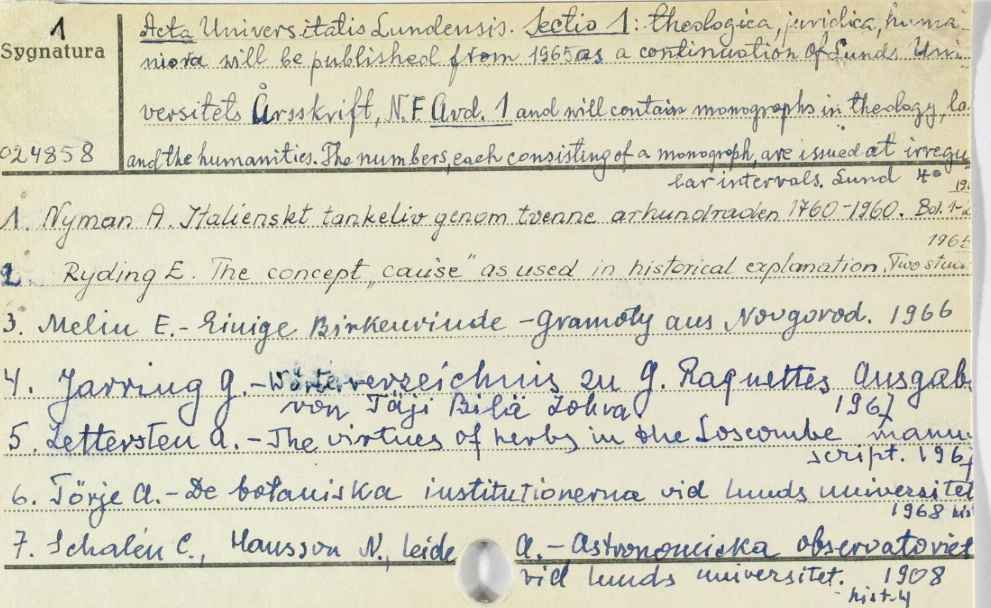 1
Sygnatura
024858
Acta Universitatis Lundensis. Sectio 1: theologica, juridica, huma-
niora will be published from 1965 as a continuation of Lunds Uni-
versitets Årsskrift, N.F. Avd. 1 and will contain monographs in theology, la
and the humanities. The numbers, each consisting of a monograph, are issued at irregu
lar intervals. Lund 4° 19.
1. Nyman A. Italienskt tankeliv genom tvenne arhundraden 1760-1960. Bd. 1-
1965
2. Ryding E. The concept „cause" as used in historical explanation. Two stu
3. Melin E. - Einige Birkenrinde - Gramoty aus Novgorod. 1966
4. Jarring G. - Wörterverzeichnis zu G. Raquettes Ausgab
von Täji Bilä Zohra 1967
5. Lettersten A. - The virtues of herbs in the Loscombe manu
script. 1967
6. Törje A. - De botaniska institutionerna vid lunds universitet
1968 his
7. Schalén C., Hansson N., Leide A. - Astronomiska observatoriet
vid lunds universitet. 1908
hist. 4